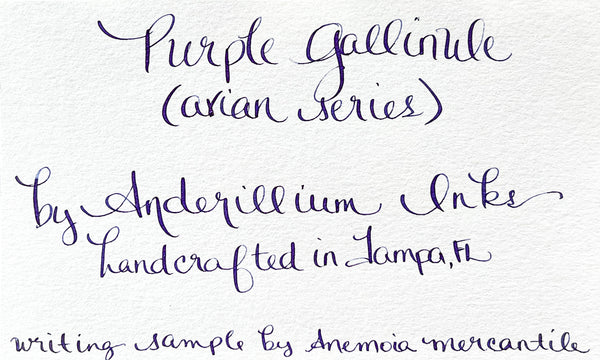 Purple Gallinule
(avian series)
by Anderillium Inks
handcrafted in Tampa, FL
writing sample by Anemoia mercantile